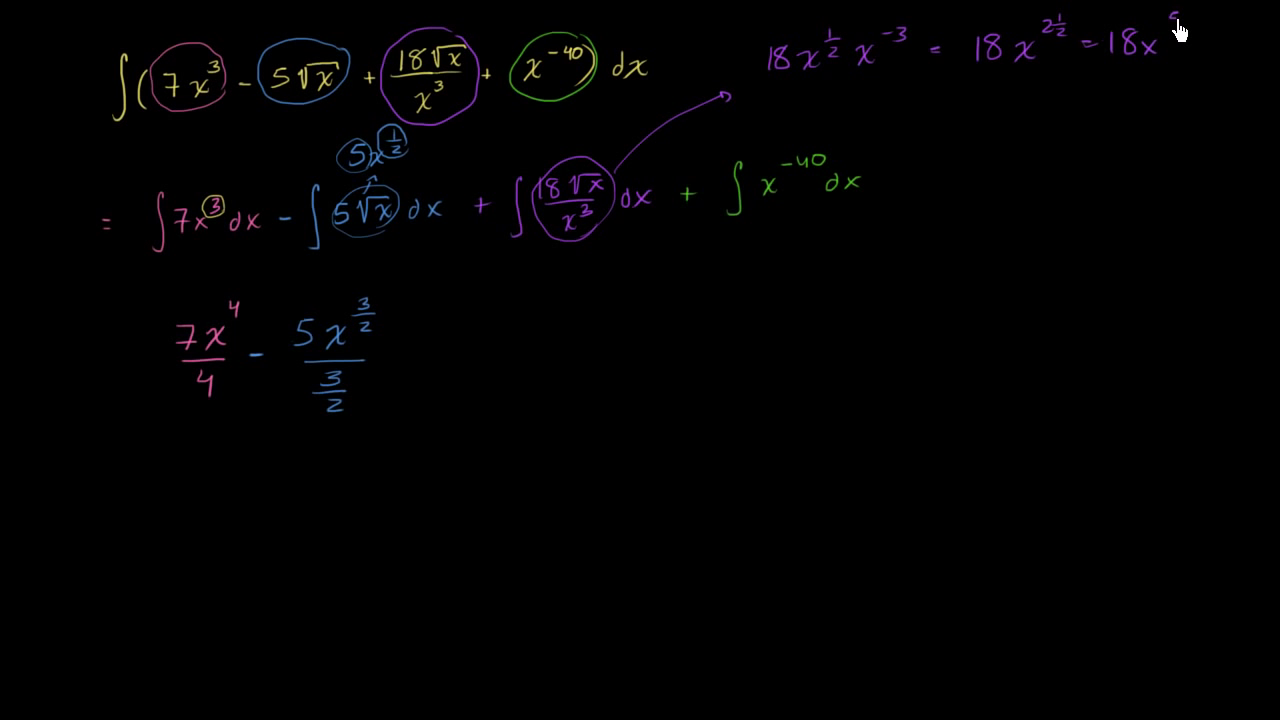 ∫(7x³ - 5√x + 18√x/x³ + x⁻⁴⁰) dx
18x^(1/2) x⁻³ = 18x^(2 1/2) = 18x⁵
5x^(1/2)
= ∫7x³dx - ∫5√x dx + ∫18√x/x³ dx + ∫x⁻⁴⁰dx
7x⁴/4 - 5x^(3/2)/(3/2)